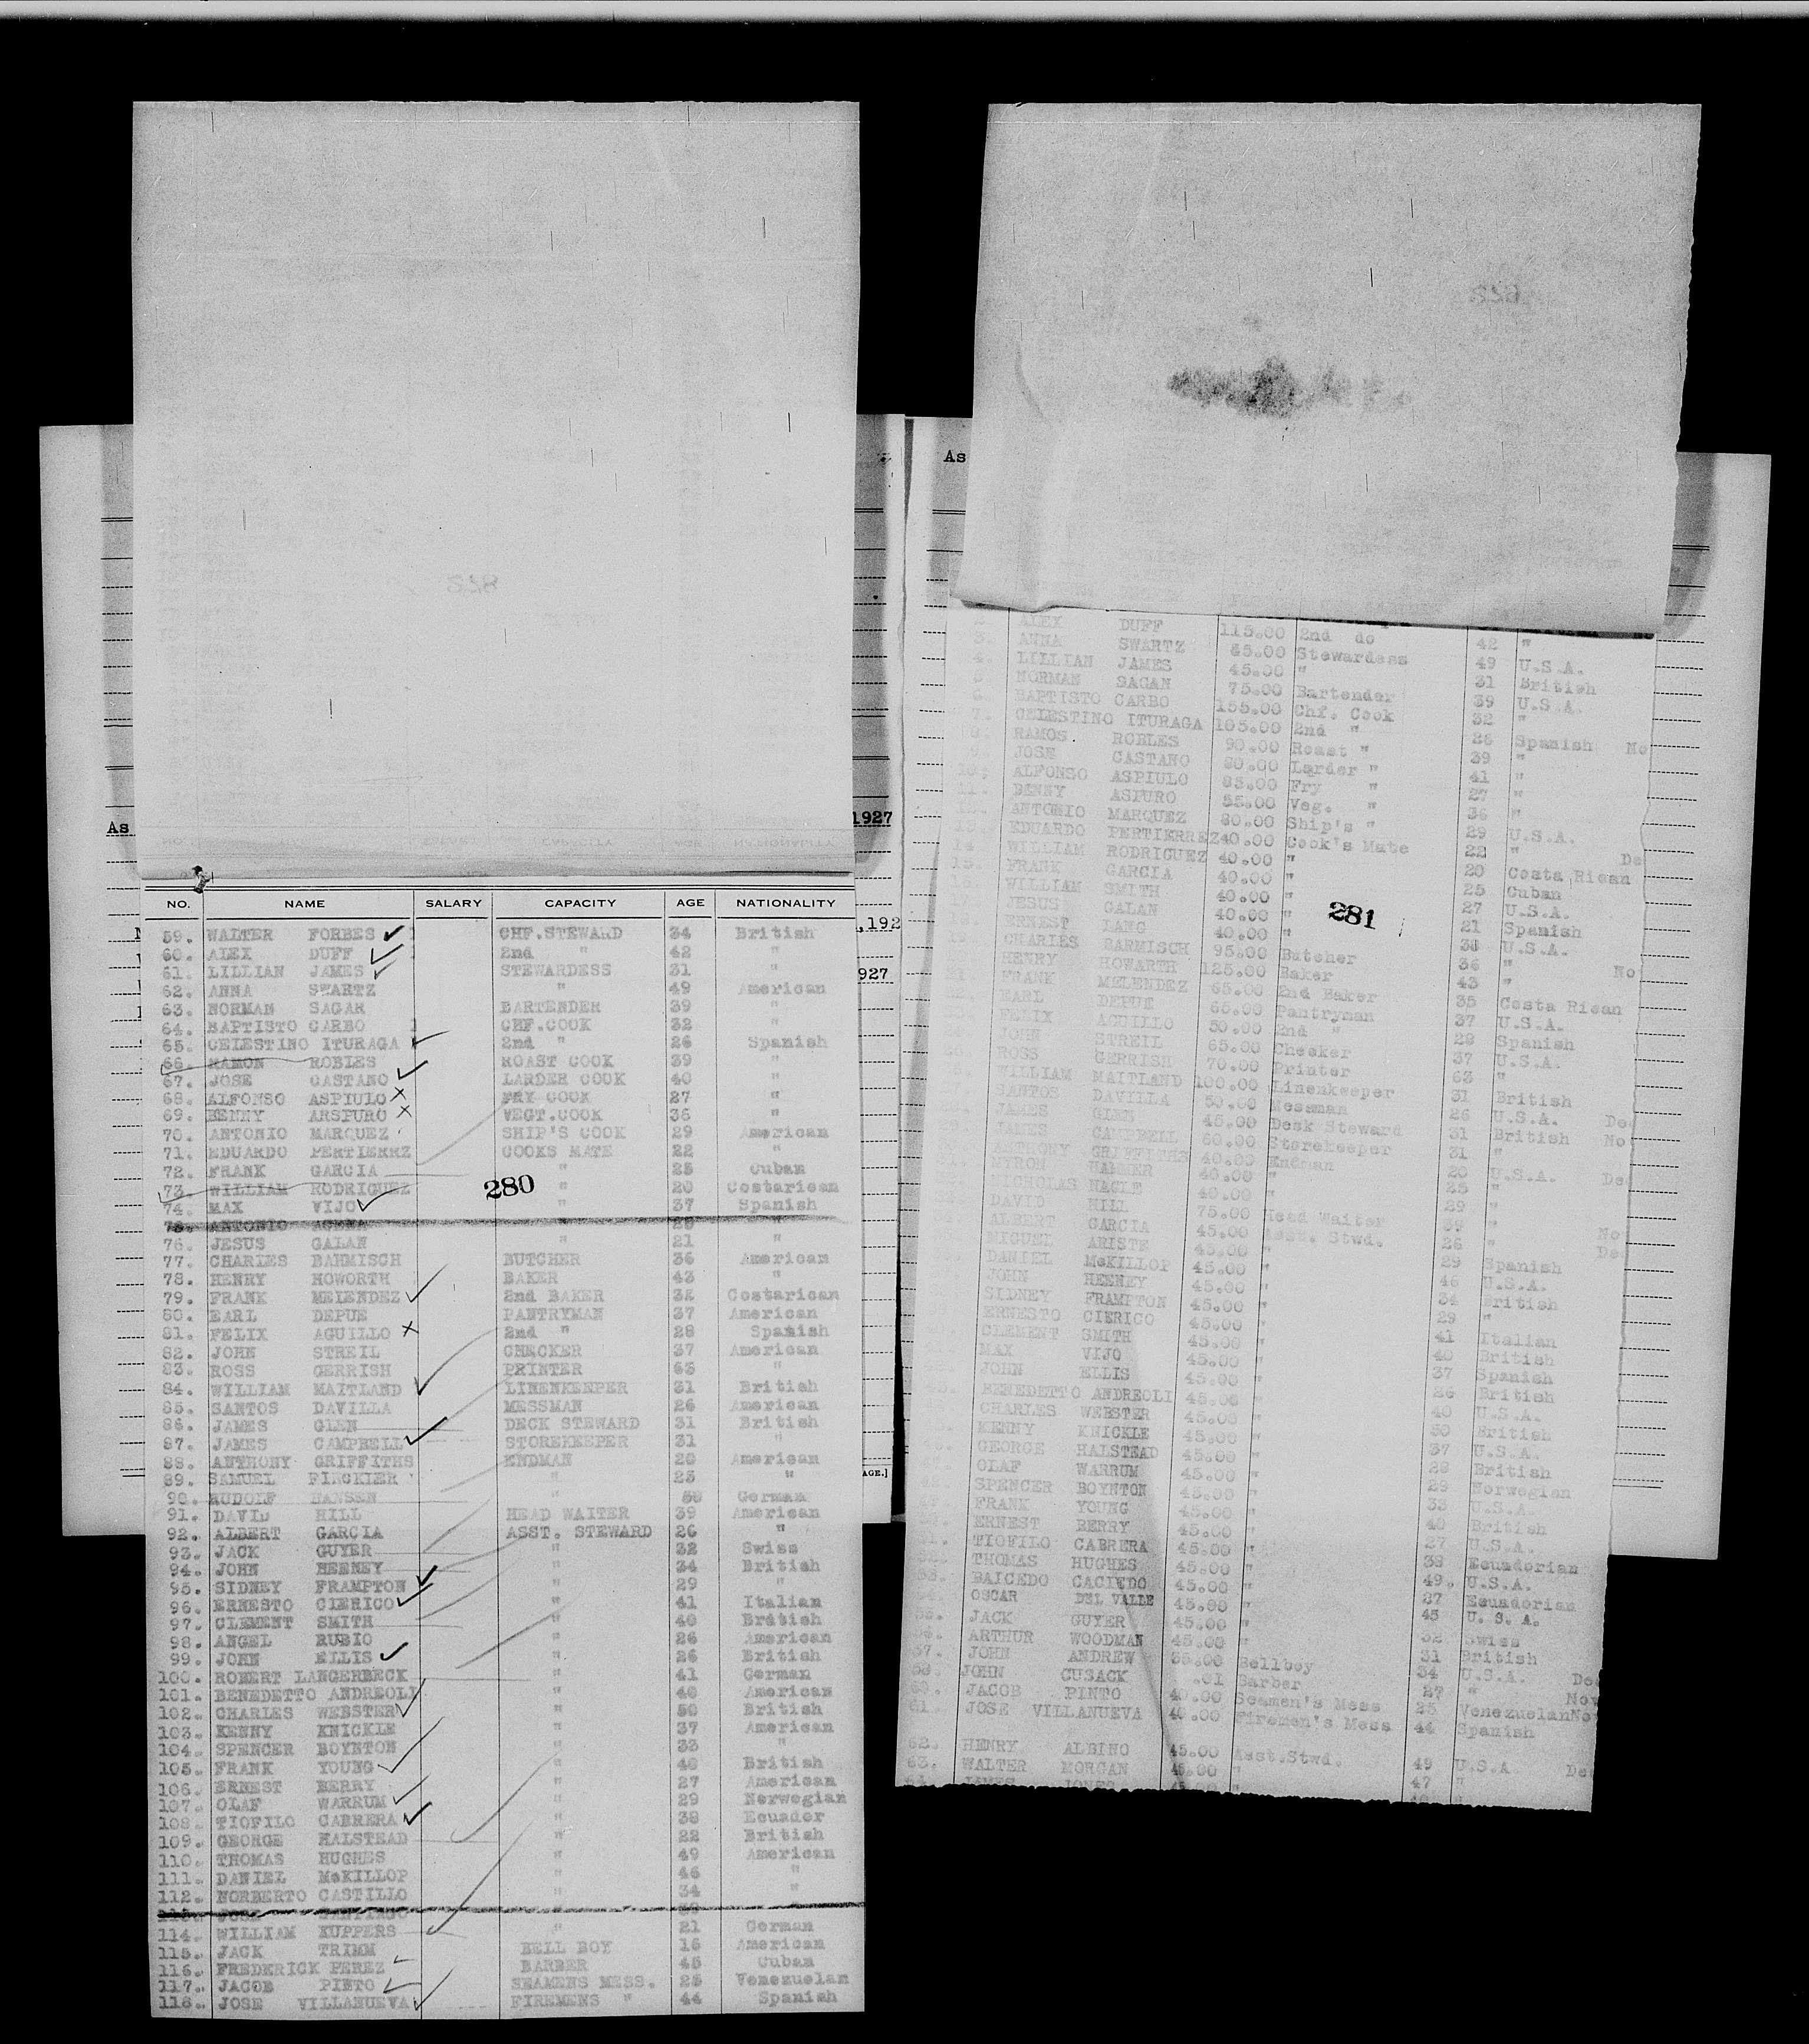 As
1927
,192
927
AGE.]
NO. NAME SALARY CAPACITY AGE NATIONALITY
59. WALTER FORBES CHF.STEWARD 34 British
60. ALEX DUFF 2nd " 42 "
61. LILLIAN JAMES STEWARDESS 31 "
62. ANNA SWARTZ " 49 American
63. NORMAN SAGAR BARTENDER 39 "
64. BAPTISTO CARBO CHF.COOK 32 "
65. CELESTINO ITURAGA 2nd " 26 Spanish
66. RAMON ROBLES ROAST COOK 39 "
67. JOSE CASTANO LARDER COOK 40 "
68. ALFONSO ASPIULO FRY COOK 27 "
69. BENNY ARSPURO VEGT.COOK 36 "
70. ANTONIO MARQUEZ SHIP'S COOK 29 American
71. EDUARDO PERTIERRZ COOKS MATE 22 "
72. FRANK GARCIA " 25 Cuban
73. WILLIAM RODRIGUEZ " 20 Costarican
280
74. MAX VIJO " 37 Spanish
75. ANTONIO
76. JESUS GALAN " 21 "
77. CHARLES BARMISCH BUTCHER 36 American
78. HENRY HOWORTH BAKER 43 "
79. FRANK MELENDEZ 2nd BAKER 35 Costarican
80. EARL DEPUE PANTRYMAN 37 American
81. FELIX AGUILLO 2nd " 28 Spanish
82. JOHN STREIL CHECKER 37 American
83. ROSS GERRISH PRINTER 63 "
84. WILLIAM MAITLAND LINENKEEPER 31 British
85. SANTOS DAVILLA MESSMAN 26 American
86. JAMES GLEN DECK STEWARD 31 British
87. JAMES CAMPBELL STOREKEEPER 31 "
88. ANTHONY GRIFFITHS ENDMAN 20 American
89. SAMUEL FINCKIER " 25 "
90. RUDOLF HANSEN " 38 German
91. DAVID HILL HEAD WAITER 39 American
92. ALBERT GARCIA ASST. STEWARD 26 "
93. JACK GUYER " 32 Swiss
94. JOHN HEENEY " 34 British
95. SIDNEY FRAMPTON " 29 "
96. ERNESTO CIERICO " 41 Italian
97. CLEMENT SMITH " 40 British
98. ANGEL RUBIO " 26 American
99. JOHN ELLIS " 26 British
100. ROBERT LANGERBECK " 41 German
101. BENEDETTO ANDREOLI " 40 American
102. CHARLES WEBSTER " 50 British
103. KENNY KNICKLE " 37 American
104. SPENCER BOYNTON " 33 "
105. FRANK YOUNG " 40 British
106. ERNEST BERRY " 27 American
107. OLAF WARRUM " 29 Norwegian
108. TIOFILO CABRERA " 38 Ecuador
109. GEORGE HALSTEAD " 22 British
110. THOMAS HUGHES " 49 American
111. DANIEL McKILLOP " 46 "
112. NORBERTO CASTILLO " 34 "
113. JOSE
114. WILLIAM KUPPERS " 21 German
115. JACK TRIMM BELL BOY 16 American
116. FREDERICK PEREZ BARBER 45 Cuban
117. JACOB PINTO SEAMENS MESS. 25 Venezuelan
118. JOSE VILLANUEVA FIREMENS " 44 Spanish
As
ALEX DUFF 115.00 2nd do 42 "
3. ANNA SWARTZ 45.00 Stewardess 49 U.S.A.
4. LILLIAN JAMES 45.00 " 31 British
5. NORMAN SAGAN 75.00 Bartender 39 U.S.A.
6. BAPTISTO CARBO 155.00 Chf. Cook 32 "
7. CELESTINO ITURAGA 105.00 2nd " 26 Spanish No
8. RAMOS. ROBLES 90.00 Roast " 39 "
9. JOSE CASTANO 80.00 Larder " 41 "
10. ALFONSO ASPIULO 85.00 Fry " 27 "
11. BENNY ASPURO 55.00 Veg. " 36 "
ANTONIO MARQUEZ 80.00 Ship's " 29 U.S.A.
EDUARDO PERTIERREZ 40.00 Cook's Mate 22 " De
14. WILLIAM RODRIGUEZ 40.00 " 20 Costa Rican
15. FRANK GARCIA 40.00 " 25 Cuban
WILLIAM SMITH 40.00 " 27 U.S.A.
281
JESUS GALAN 40.00 " 21 Spanish
ERNEST LANG 40.00 " 38 U.S.A.
CHARLES BARMISCH 95.00 Butcher 36 " No
HENRY HOWARTH 125.00 Baker 43 "
FRANK MELENDEZ 65.00 2nd Baker 35 Costa Rican
EARL DEPUE 65.00 Pantryman 37 U.S.A.
FELIX AGUILLO 50.00 2nd " 28 Spanish
JOHN STREIL 65.00 Checker 37 U.S.A.
ROSS GERRISH 70.00 Printer 63 "
WILLIAM MAITLAND 100.00 Linenkeeper 31 British
SANTOS DAVILLA 50.00 Messman 26 U.S.A. De
JAMES GLEN 45.00 Desk Steward 31 British No
JAMES CAMPBELL 60.00 Storekeeper 31 "
ANTHONY GRIFFITHS 40.00 Endman 20 U.S.A. De
MYRON 40.00 " 25 "
NICHOLAS NAGLE 40.00 " 29 "
DAVID HILL 75.00 Head Waiter 39 " No
ALBERT GARCIA 45.00 Asst. Stwd. 26 " De
MIGUEL ARISTE 45.00 " 29 Spanish
DANIEL McKILLOP 45.00 " 46 U.S.A.
JOHN HEENEY 45.00 " 34 British
SIDNEY FRAMPTON 45.00 " 29 "
ERNESTO CIERICO 45.00 " 41 Italian
CLEMENT SMITH 45.00 " 40 British
MAX VIJO 45.00 " 37 Spanish
JOHN ELLIS 45.00 " 26 British
BENEDETTO ANDREOLI 45.00 " 40 U.S.A.
CHARLES WEBSTER 45.00 " 50 British
KENNY KNICKLE 45.00 " 37 U.S.A.
GEORGE HALSTEAD 45.00 " 22 British
OLAF WARRUM 45.00 " 29 Norwegian
SPENCER BOYNTON 45.00 " 33 U.S.A.
FRANK YOUNG 45.00 " 40 British
ERNEST BERRY 45.00 " 27 U.S.A.
TIOFILO CABRERA 45.00 " 38 Ecuadorian
THOMAS HUGHES 45.00 " 49. U.S.A.
BAICEDO CACIEDO 45.00 " 27 Ecuadorian
OSCAR DEL VALLE 45.00 " 45 U. S. A.
55. JACK GUYER 45.00 " 32 Swiss
56. ARTHUR WOODMAN 45.00 " 31 British
57. JOHN ANDREW 35.00 Bellboy 34 U.S.A. De
58. JOHN CUSACK .01 Barber 27 " Nov
60. JACOB PINTO 40.00 Seamen's Mess 25 Venezuelan No
61. JOSE VILLANUEVA 40.00 Firemen's Mess 44 Spanish
62. HENRY ALBINO 45.00 Asst.Stwd. 49 U.S.A. De
63. WALTER MORGAN 45.00 " 47 "
64. JAMES JONES 45.00 "